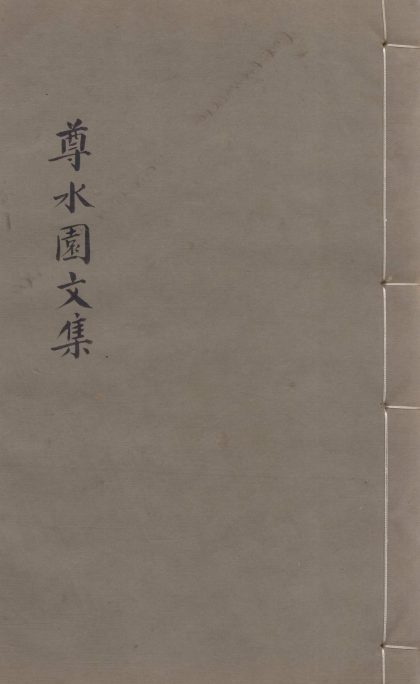 尊水園文集